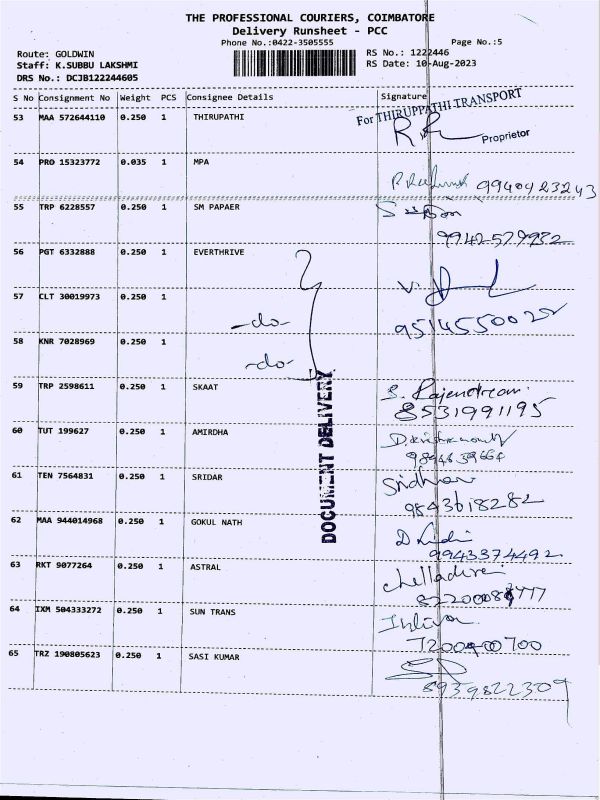 THE PROFESSIONAL COURIERS, COIMBATORE
Delivery Runsheet - PCC
Phone No.:0422-3505555
Page No.:5
Route: GOLDWIN
RS No.: 1222446
Staff: K.SUBBU LAKSHMI
RS Date: 10-Aug-2023
DRS No.: DCJB122244605
S No Consignment No Weight PCS Consignee Details Signature
53 MAA 572644110 0.250 1 THIRUPATHI
For THIRUPPATHI TRANSPORT
Proprietor
54 PRO 15323772 0.035 1 MPA
9940423243
55 TRP 6228557 0.250 1 SM PAPAER
9942579932
56 PGT 6332888 0.250 1 EVERTHRIVE
57 CLT 30019973 0.250 1
-do-
9514550025
58 KNR 7028969 0.250 1
-do-
DOCUMENT DELIVERY
59 TRP 2598611 0.250 1 SKAAT S. Rajendran
8531991195
60 TUT 199627 0.250 1 AMIRDHA
61 TEN 7564831 0.250 1 SRIDAR Sridhar
9843618282
62 MAA 944014968 0.250 1 GOKUL NATH
9943374492
63 RKT 9077264 0.250 1 ASTRAL Chelladurai
64 IXM 504333272 0.250 1 SUN TRANS
7200400700
65 TRZ 190805623 0.250 1 SASI KUMAR
8939822309